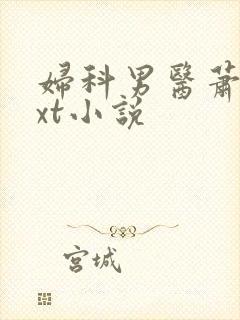 婦科男醫蕭
xt小說
宮城